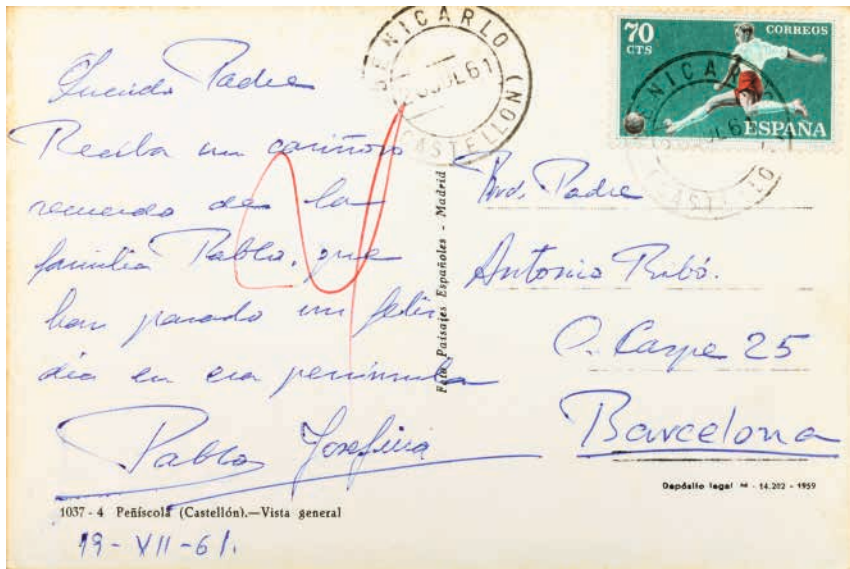 Querido Padre
Reciba un cariñoso
recuerdo de la
familia Pablo, que
han pasado un feliz
día en esa península
Pablo Josefina
1037 - 4 Peñíscola (Castellón).—Vista general
19-VII-61.
Foto Paisajes Españoles - Madrid
BENICARLO (CASTELLON)
JUL 61
70
CTS
CORREOS
ESPAÑA
BENICARLO
JUL 61
Rvd. Padre
Antonio Ribó.
C. Caspe 25
Barcelona
Depósito legal M - 14.202 - 1959